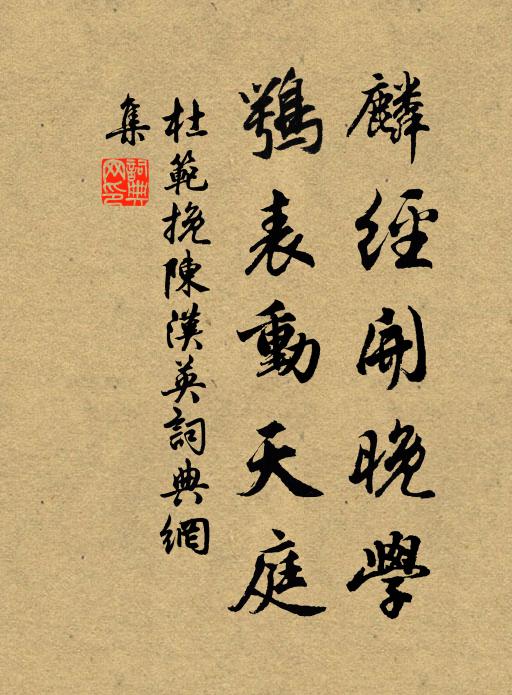 麟經開晚學
鶚表動天庭
杜範挽陳漢英詞典網
集
詞典網印